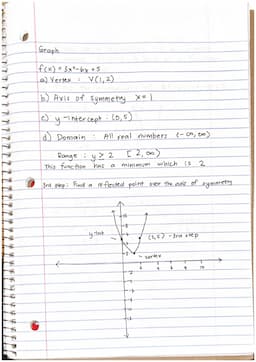 Graph
f(x) = 3x²-6x+5
a) Vertex : V(1,2)
b) Axis of Symmetry x=1
c) y-intercept : (0,5)
d) Domain : All real numbers (-∞,∞)
Range : y ≥ 2 [2,∞)
This function has a minimum which is 2
3rd step: Find a reflected point over the axis of symmetry
y-int
(2,5) -3rd step
vertex